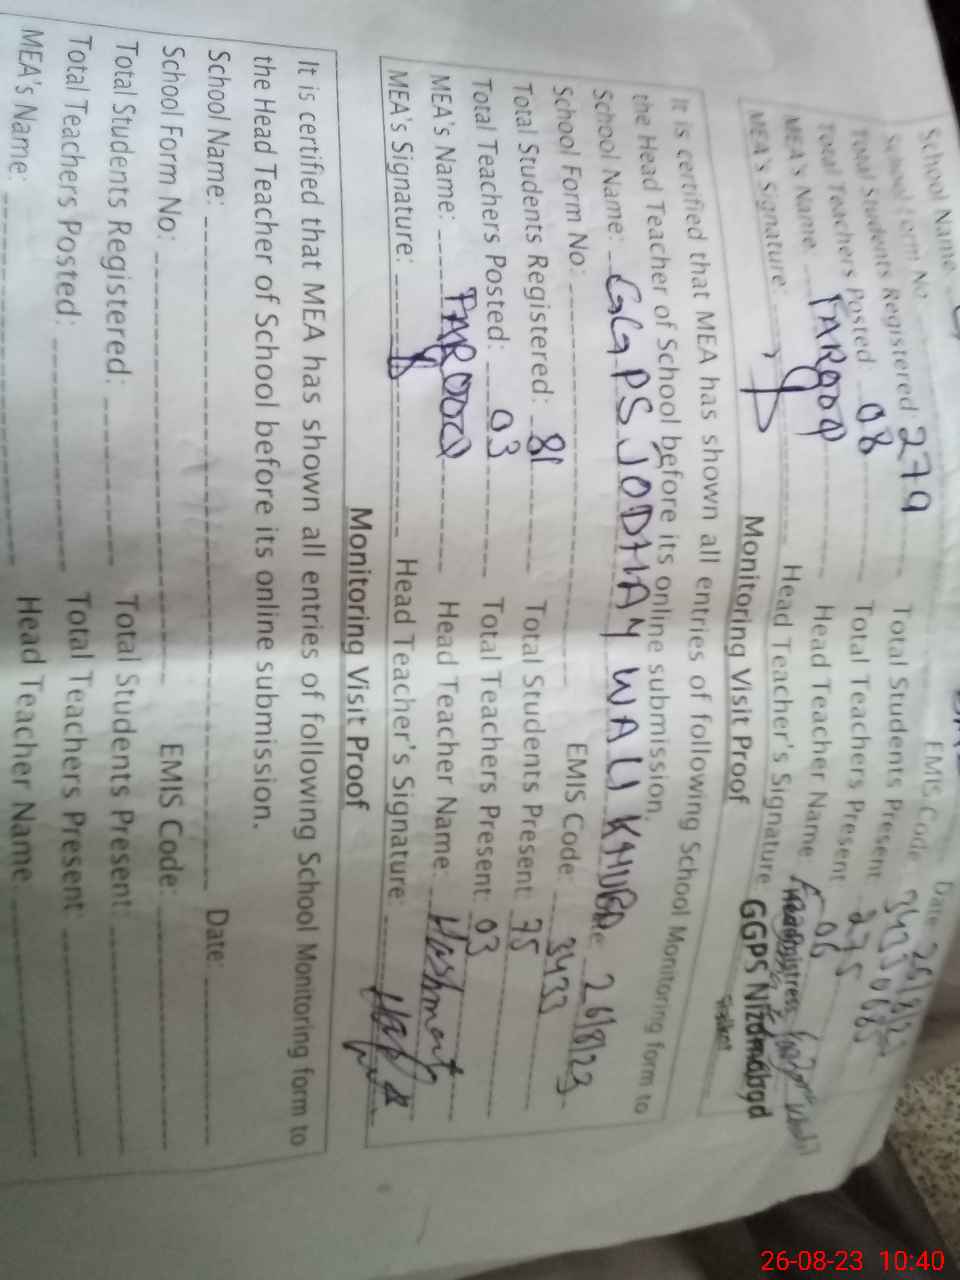 School Name Date 26/8/23
School Form No. EMIS Code
Total Students Registered: 279 Total Students Present 275
Total Teachers Posted 08 Total Teachers Present 06
MEA's Name: FAROOQ Head Teacher Name:
MEA's Signature Head Teacher's Signature: Headmistress
GGPS Nizamabad
Monitoring Visit Proof
It is certified that MEA has shown all entries of following School Monitoring form to
the Head Teacher of School before its online submission.
School Name: GGPS JODHAY WALI KHURD Date: 26/8/23
School Form No: EMIS Code: 3433
Total Students Registered: 81 Total Students Present: 75
Total Teachers Posted: 03 Total Teachers Present: 03
MEA's Name: FAROOQ Head Teacher Name: Hashmat
MEA's Signature: Head Teacher's Signature:
Monitoring Visit Proof
It is certified that MEA has shown all entries of following School Monitoring form to
the Head Teacher of School before its online submission.
School Name: Date:
School Form No: EMIS Code:
Total Students Registered: Total Students Present:
Total Teachers Posted: Total Teachers Present:
MEA's Name: Head Teacher Name:
26-08-23 10:40